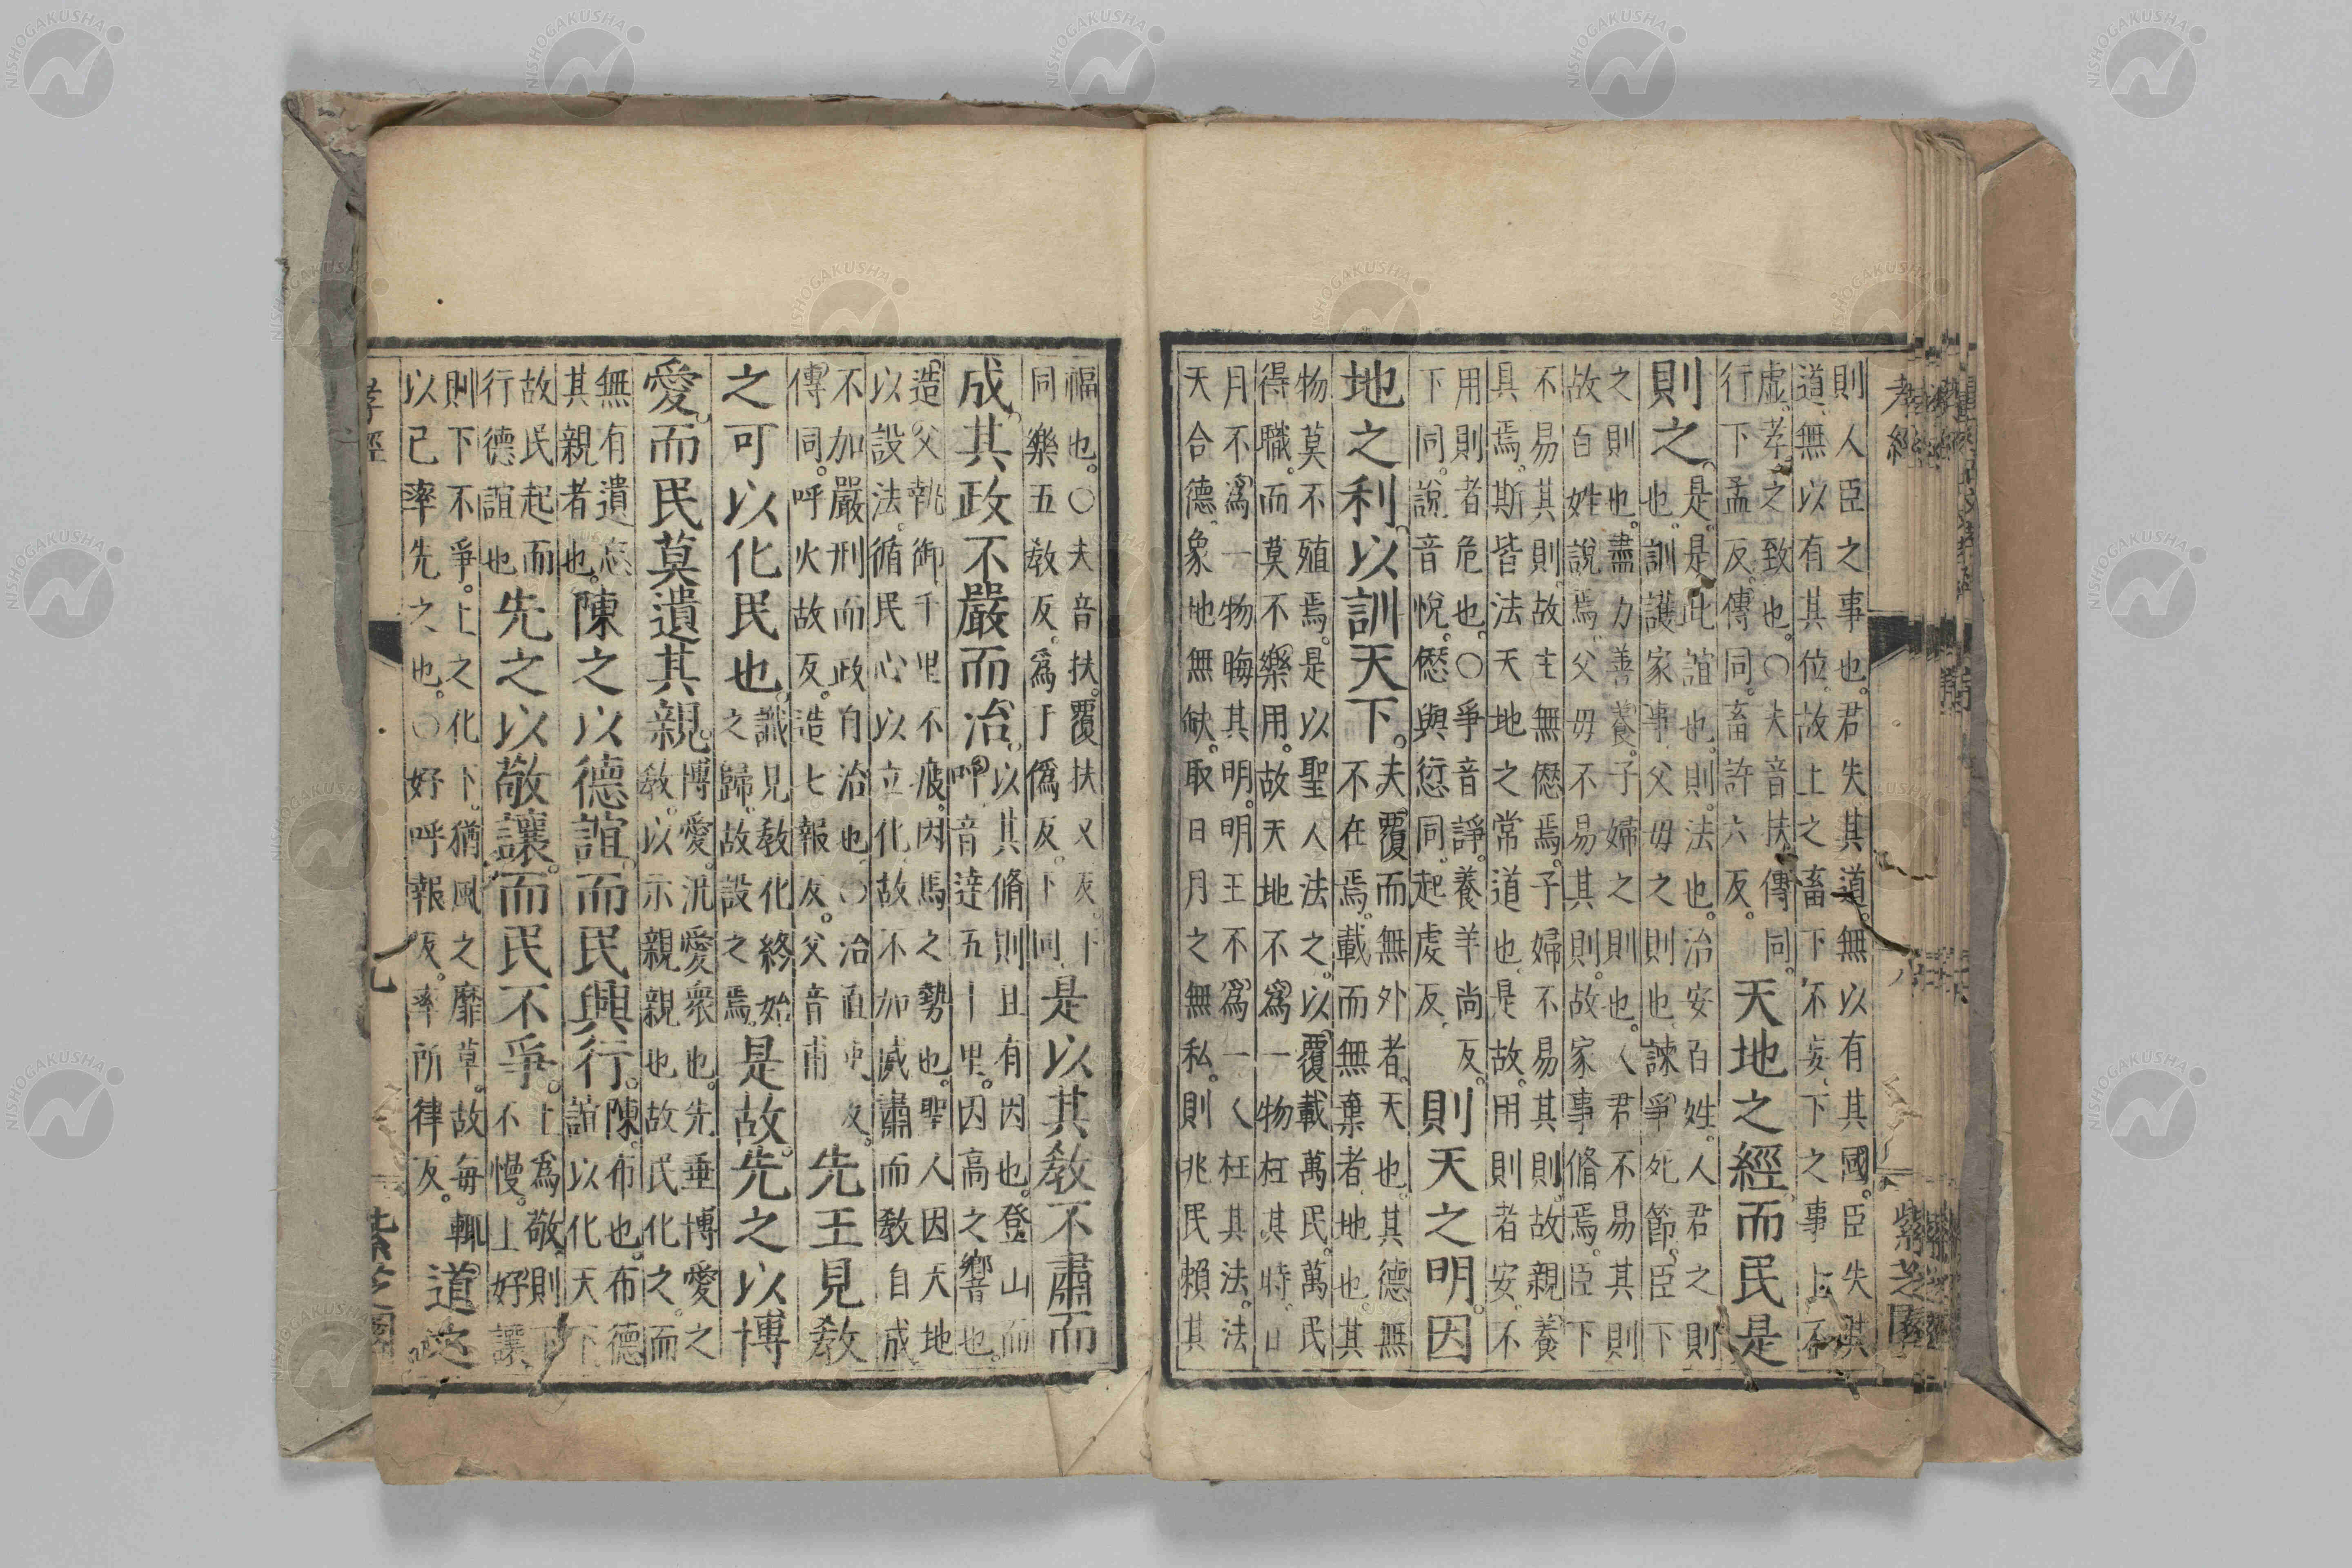 孝經 八 紫芝園
則人臣之事也。君失其道。無以有其國。臣失其
道、無以有其位。故上之畜下、不妄、下之事上、不
虚。孝之致也。〇夫音扶。傳同。
行下孟反。傳同。畜許六反。
天地之經而民是
則之。
是。是此誼也。則。法也。治安百姓。人君之則
也。訓護家事父母之則也。諫爭死節。臣下
之則也。盡力善養。子婦之則也。人君不易其則
故百姓說焉。父母不易其則。故家事脩焉。臣下
不易其則。故主無僁焉。子婦不易其則。故親養
具焉。斯皆法天地之常道也。是故。用則者安。不
用則者危也。〇爭音諍。養羊尚反。
下同。說音悅。僁與愆同。起虔反。
則天之明。因
地之利。以訓天下。
夫覆而無外者。天也。其德無
不在焉。載而無棄者。地也其
物莫不殖焉。是以聖人法之。以覆載萬民。萬民
得職。而莫不樂用。故天地不爲一物枉其時。日
月不爲一物晦其明。明王不爲一人枉其法。法
天合德。象地無缺。取日月之無私。則兆民賴其
福也。〇夫音扶。覆扶又反。下
同樂五教反。爲于僞反。下同。
是以其教不肅而
成。其政不嚴而治。
以其脩則且有因也。登山而
呼。音達五十里。因高之響也。
造父執御千里不疲。因馬之勢也。聖人因天地
以設法。循民心以立化。故不加威肅而教自成
不加嚴刑而政自治也。〇治直吏反。
傳同。呼火故反。造七報反。父音甫
先王見教
之可以化民也。
識見教化終始
之歸。故設之焉。
是故。先之以博
愛。而民莫遺其親。
博愛。汎愛衆也。先垂博愛之
教。以示親親也故民化之。而
無有遺忘
其親者也。
陳之以德誼。而民興行。
陳。布也。布德
誼以化天下
故民起而
行德誼也
先之以敬讓。而民不爭。
上爲敬。則下
不慢。上好讓
則下不爭。上之化下。猶風之靡草。故毎輒
以己率先之也。〇好呼報反。率所律反。
道之
孝經 九 紫芝園